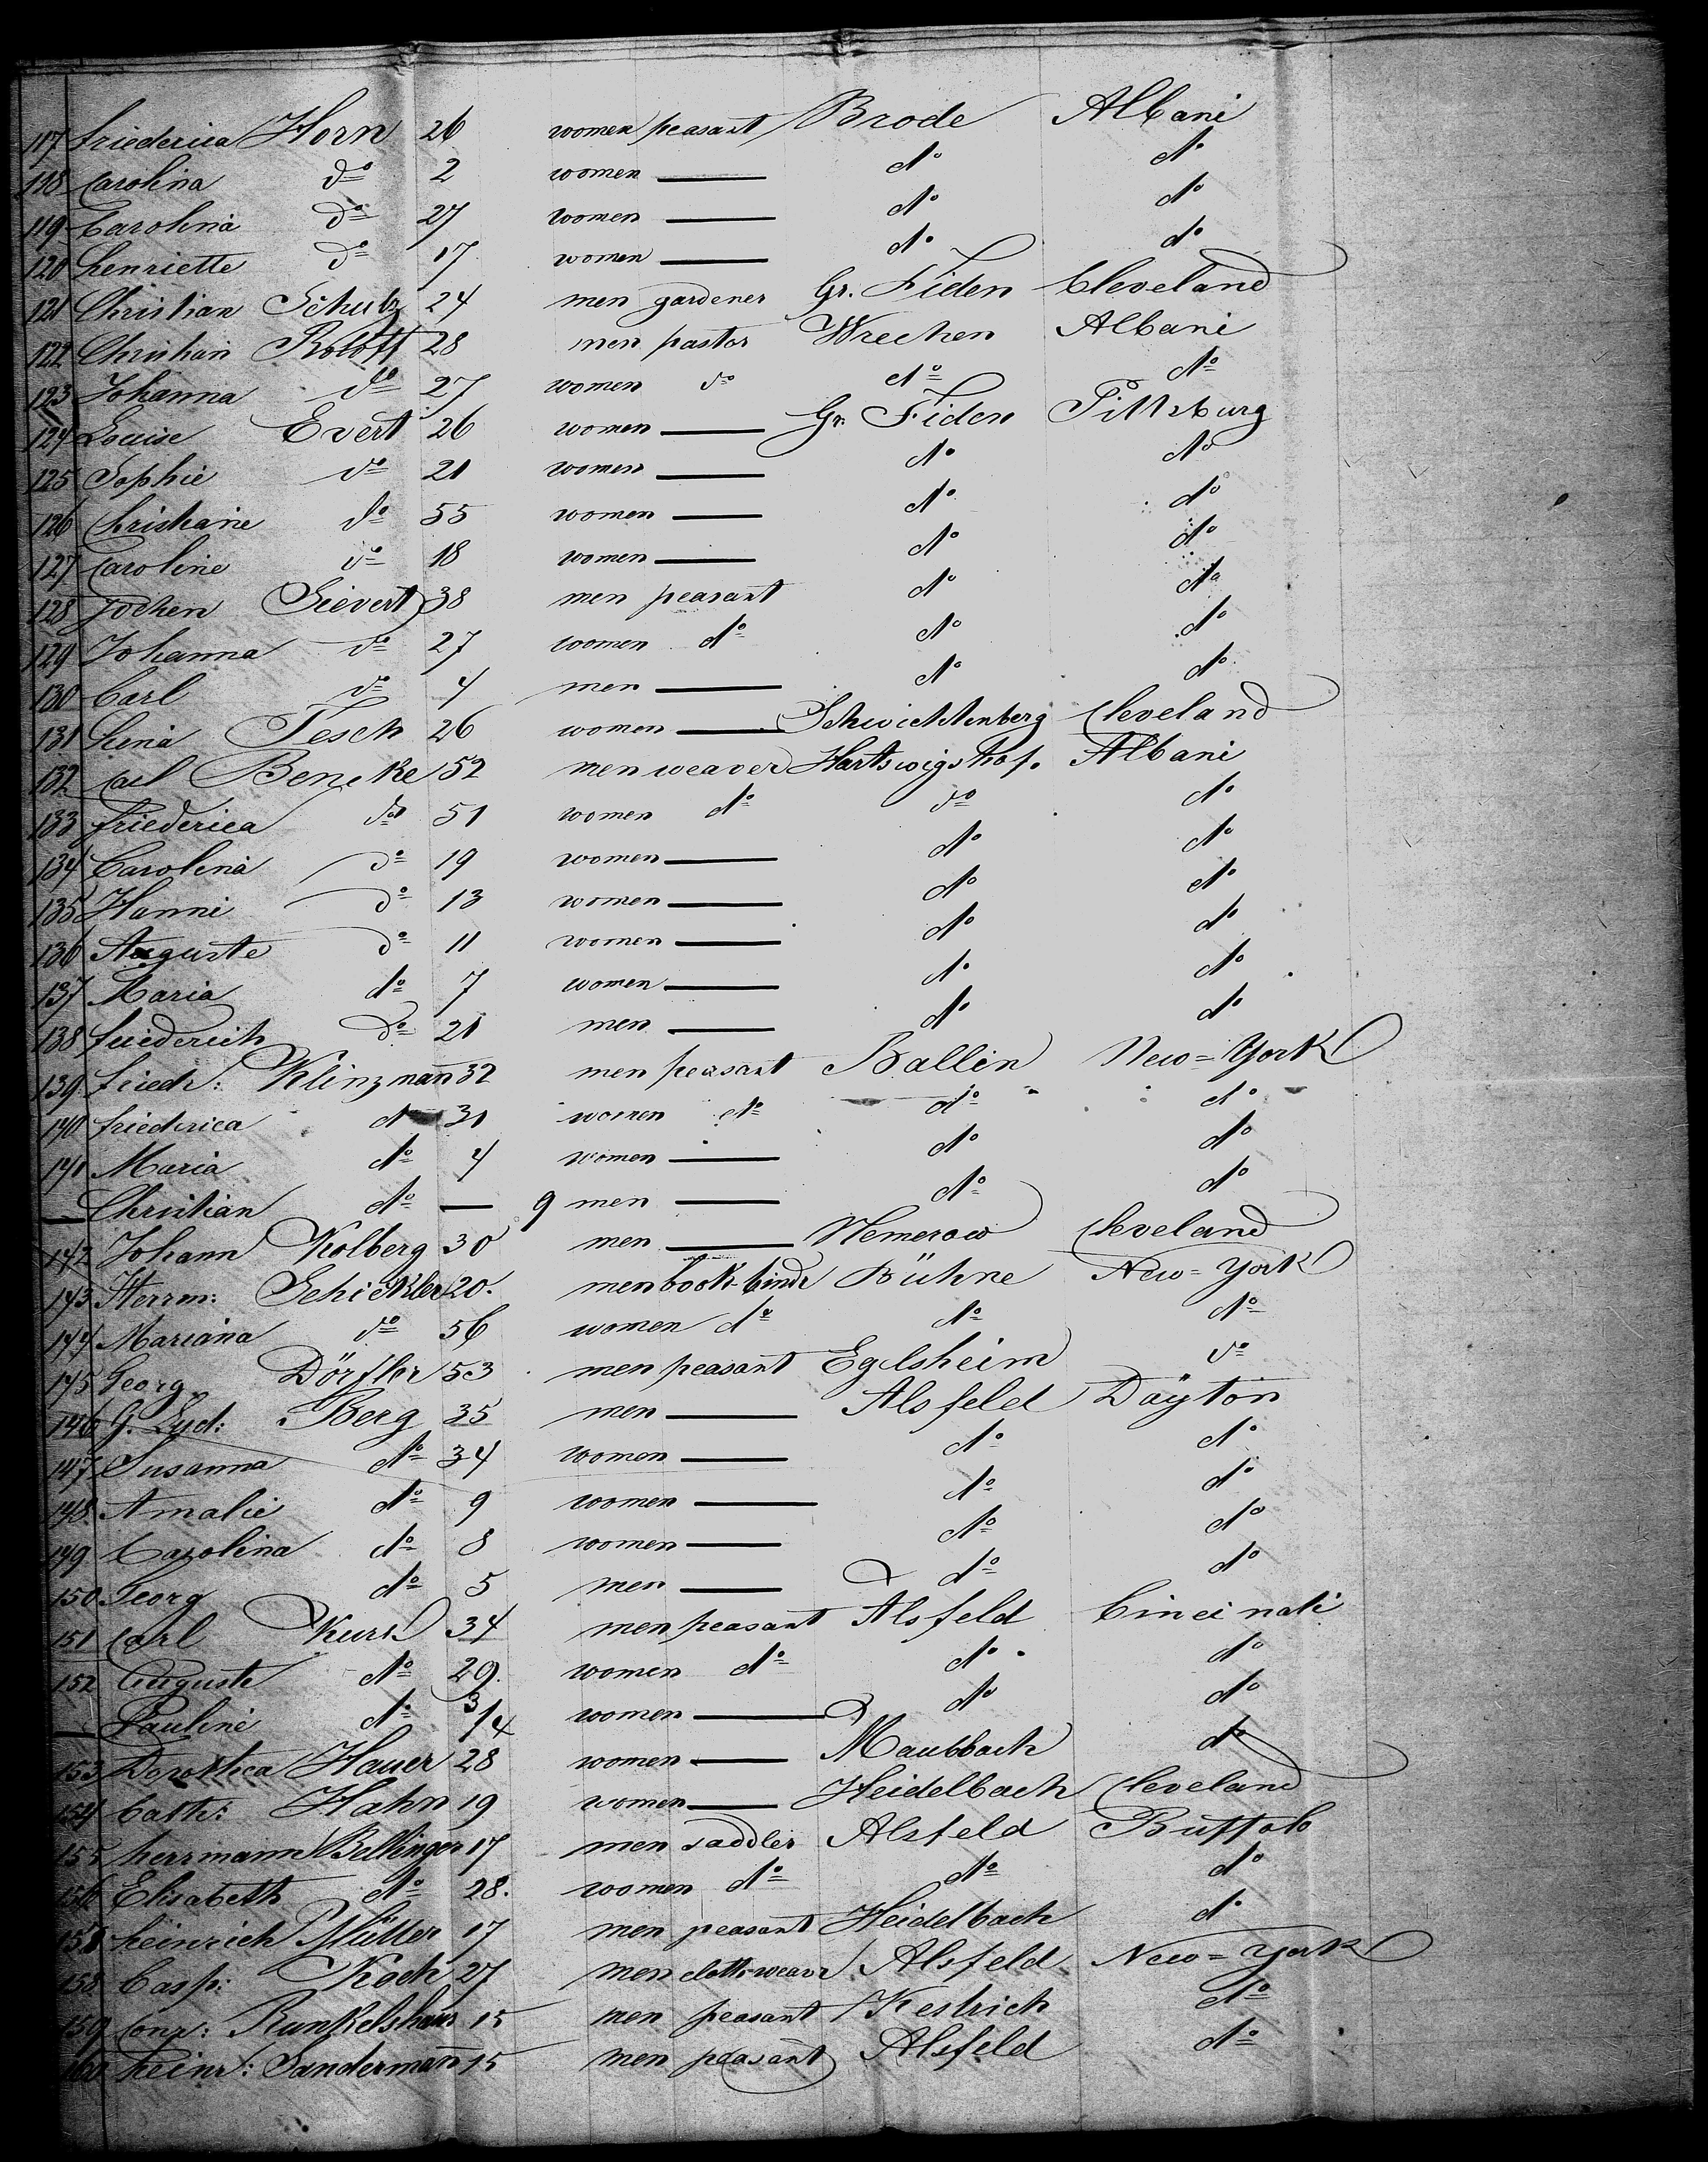 117 Friederica Horn 26 women peasant Brode Albani
118 Carolina do 2 women — do do
119 Carolina do 27 women — do do
120 henriette do 17 women — do do
121 Christian Schulz 24 men gardener Gr. Fiden Cleveland
122 Christian Roloff 28 men pastor Wrechen Albani
123 Johanna do 27 women do do do
124 Louise Evert 26 women — Gr. Fiden Pittsburg
125 Sophie do 21 women — do do
126 Christiane do 55 women — do do
127 Caroline do 18 women — do do
128 Jochen Sievert 38 men peasant do do
129 Johanna do 27 women do do do
130 Carl do 4 men — do do
131 Lena Tesch 26 women — Schwichtenberg Cleveland
132 Carl Bencke 52 men weaver Hartwigshof. Albani
133 friederica do 51 women do do do
134 Carolina do 19 women — do do
135 Hanni do 13 women — do do
136 Auguste do 11 women — do do
137 Maria do 7 women — do do
138 friederich do 21 men — do do
139 friedr: Klinzman 32 men peasant Ballin New=York
140 friederica do 31 women do do do
141 Maria do 4 women — do do
— Christian do — 9 men — do do
142 Johann Kolberg 30 men — Nemerow Cleveland
143 Herrm: Schickler 20. men book-bindr Bühne New=York
144 Mariana do 56 women do do do
145 Georg Dörfler 53 men peasant Egelsheim do
146 G. Lyd: Berg 35 men — Alsfeld Dayton
147 Susanna do 34 women — do do
148 Amalie do 9 women — do do
149 Carolina do 8 women — do do
150 Georg do 5 men — do do
151 Carl Kurs 34 men peasant Alsfeld Cincinati
152 Auguste do 29. women do do do
— Pauline do 3/4 women — do do
153 Dorothea Hauer 28 women — Maubbach do
154 Cath: Hahn 19 women — Heidelbach Cleveland
155 herrmann Bellinger 17 men saddler Alsfeld Buffalo
156 Elisabeth do 28. women do do do
157 heinrich Müller 17 men peasant Heidelbach do
158 Casp: Koch 27 men cloth-weavr Alsfeld New=York
159 Conr: Runkelshaus 15 men peasant Kestrich do
160 heinr: Sanderman 15 men peasant Alsfeld do